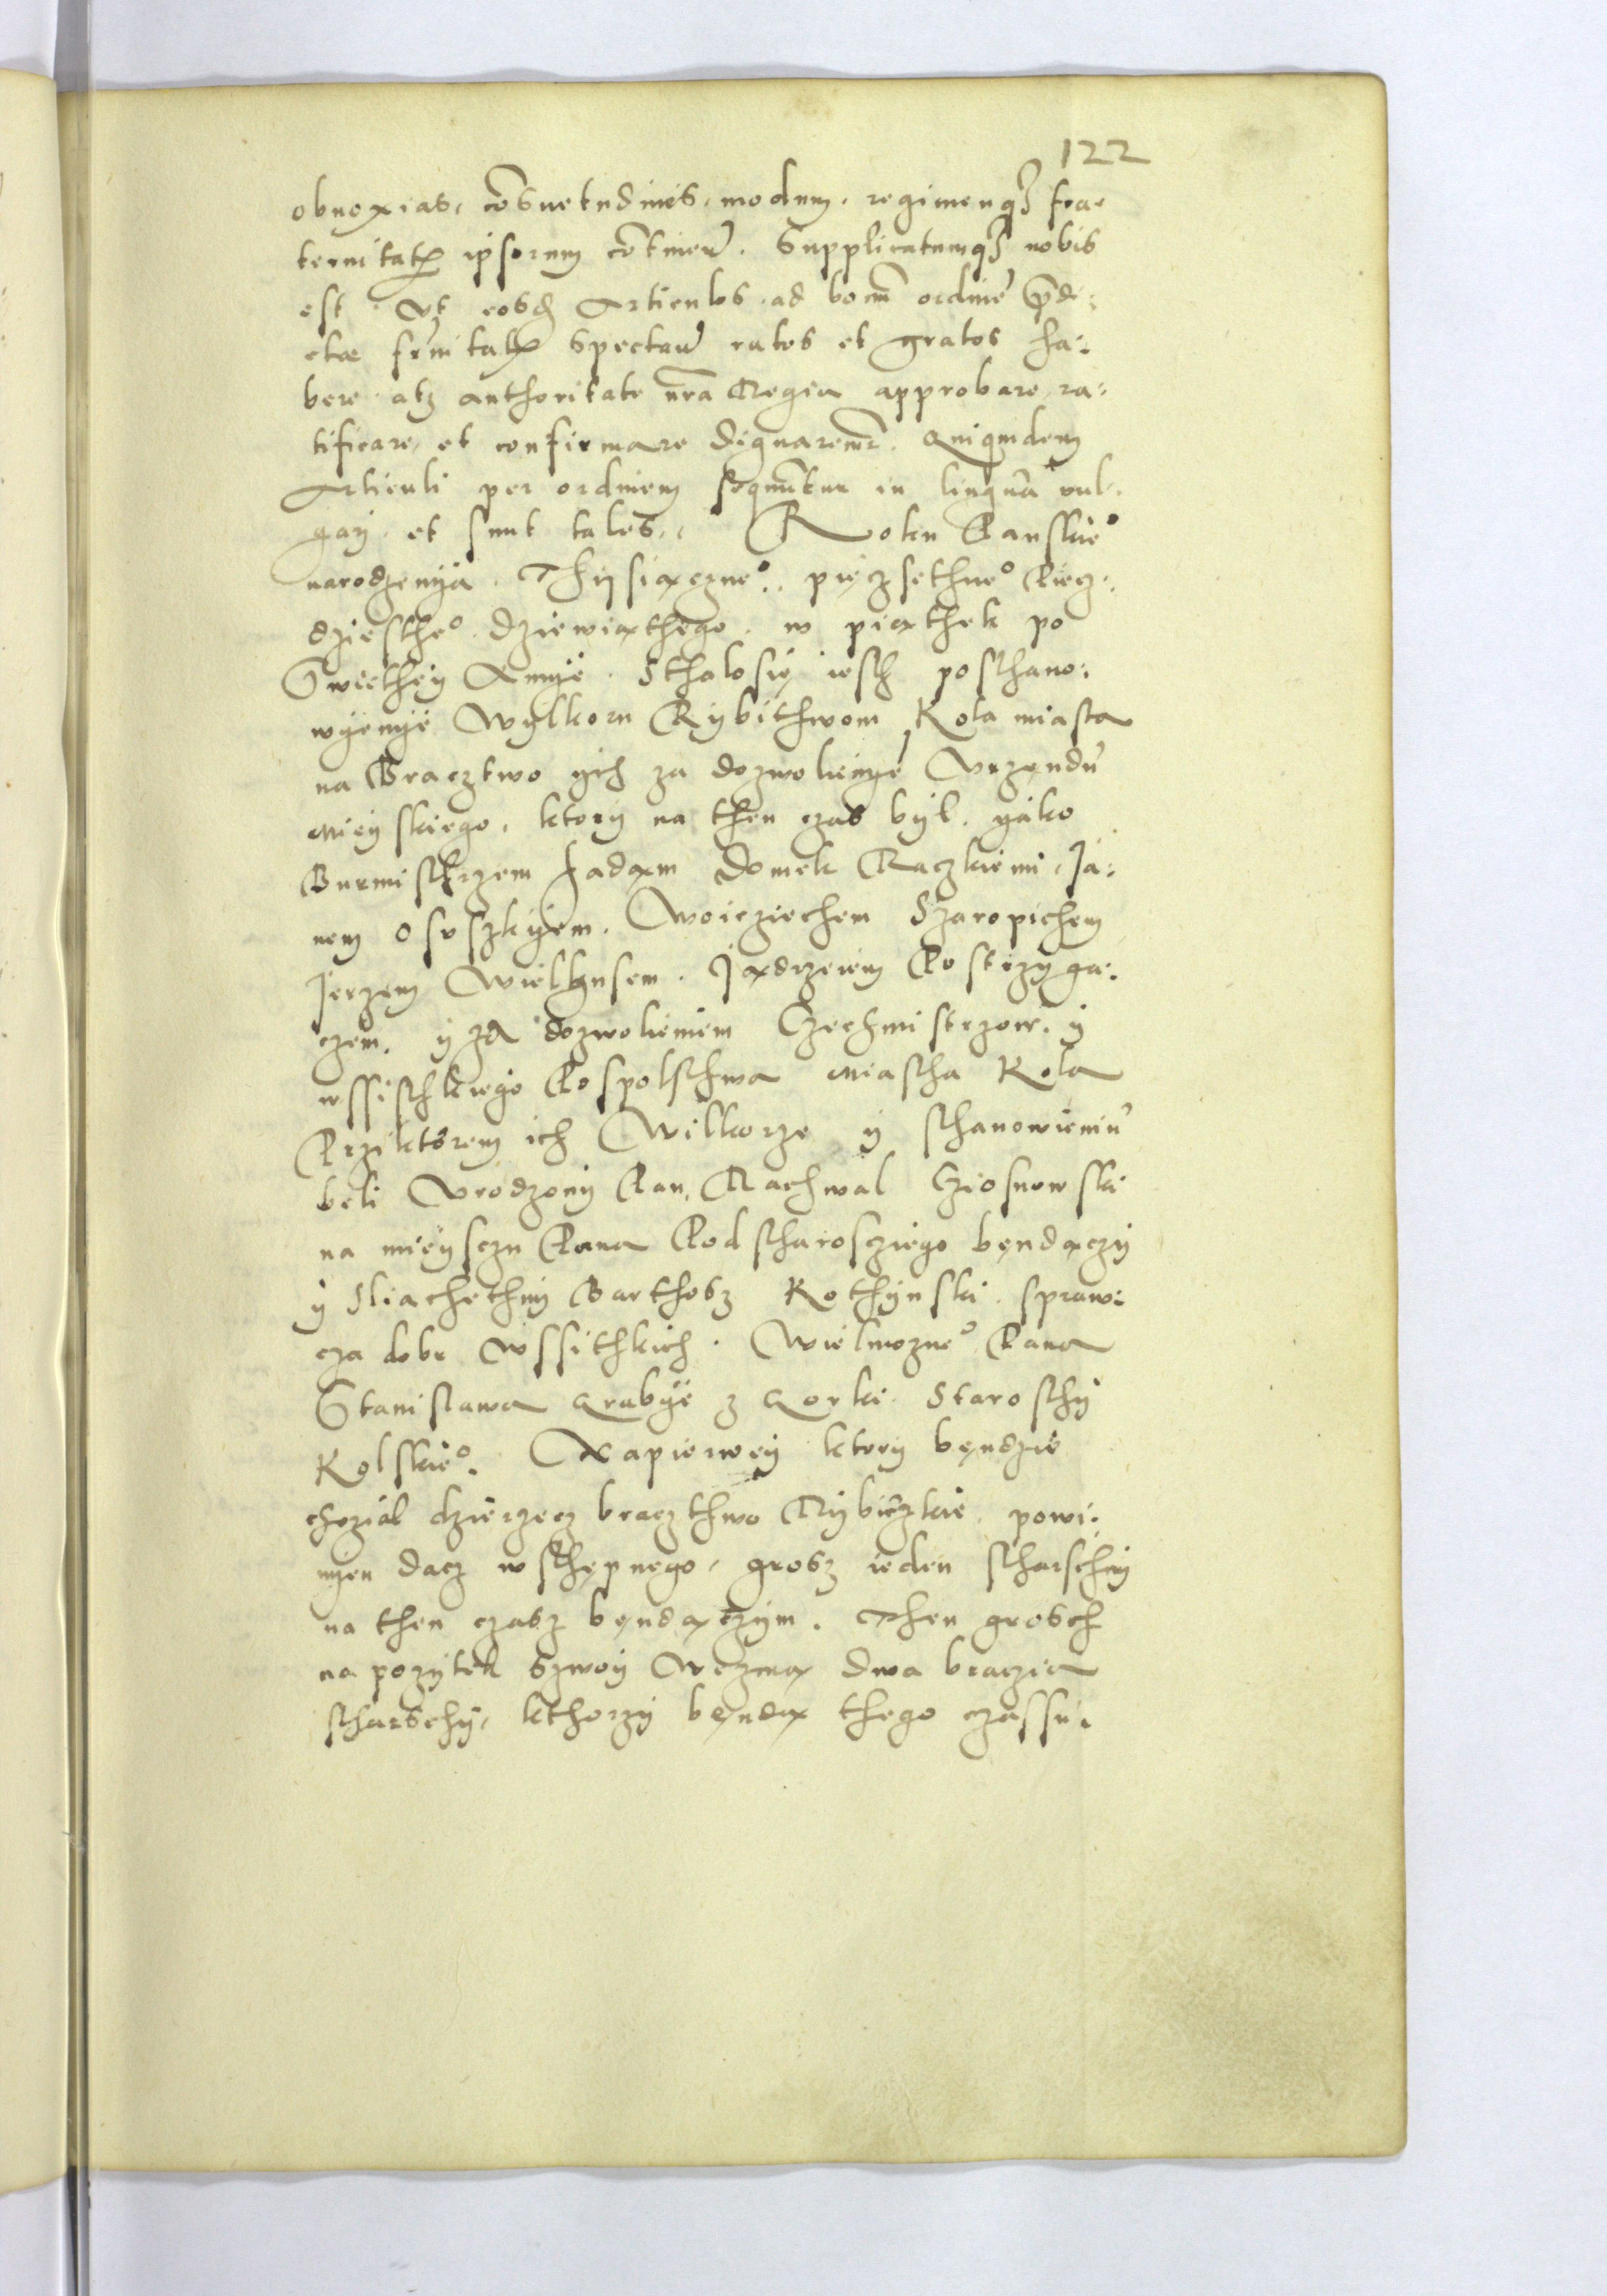 122
obnoxias, cōsuetudines, modum, regimenqʒ fra-
ternitatꝭ ipsorum cōtineñ. Supplicatumqʒ nobis
est vt eosdꝫ Articulos ad bonū ordinē p̄di-
ctæ fr̄nitatꝭ spectañ ratos et gratos ha-
bere atqʒ authoritate nr̄a Regia approbare, ra-
tificare, et confirmare dignaremr̄. Quiquidem
Articuli per ordinem sequūtur in lingua vul-
gari et sunt tales. Roku Panskieº
narodzenya Thysiaczneº. pięczsethneº Piecz-
dziestheº dziewiathego w piathek po
Swiethey Annye Sthalosię iesth posthano-
wyenye Wylkoru Rybithwom Kola miasta
na Bracztwo ych za dozwolienyē Vrzendu
mieyskiego, ktory na then czas byl. yako
Burmistrzem Hadam Domek Raczkiemi, Ja-
nem Osuszkyem. Woicziechem Szaropichem
Jerzem Wielkusem. Jadrzeiem Postrzyga-
czem. y za dozwoliemiem Czechmistrzow. y
wssisthkiego Pospolsthwa miastha Kola
Przi ktorem ich Wilkorze y sthanowieniu
beli Vrodzony Pan, Rachwal Cziosnowski
na mieysczu Pana Podstharosciego bendaczy
y Sliachethny Barthosz Kothynski sprawi-
cza dobr Wssithkich. Wielmozneº Pana
Stanislawa Grabye z Gorki Starosthy
Kolskieº. Napierwey ktory bendzie
chczial dzierzecz braczthwo Rybiczkie, powi-
nyen dacz wsthępnego, grosz ieden stharschym
na then czasz bendaczym. Then grosch
na pozytek szwoy Wezma dwa braczia
stharschy, kthorzy benda thego czassu.